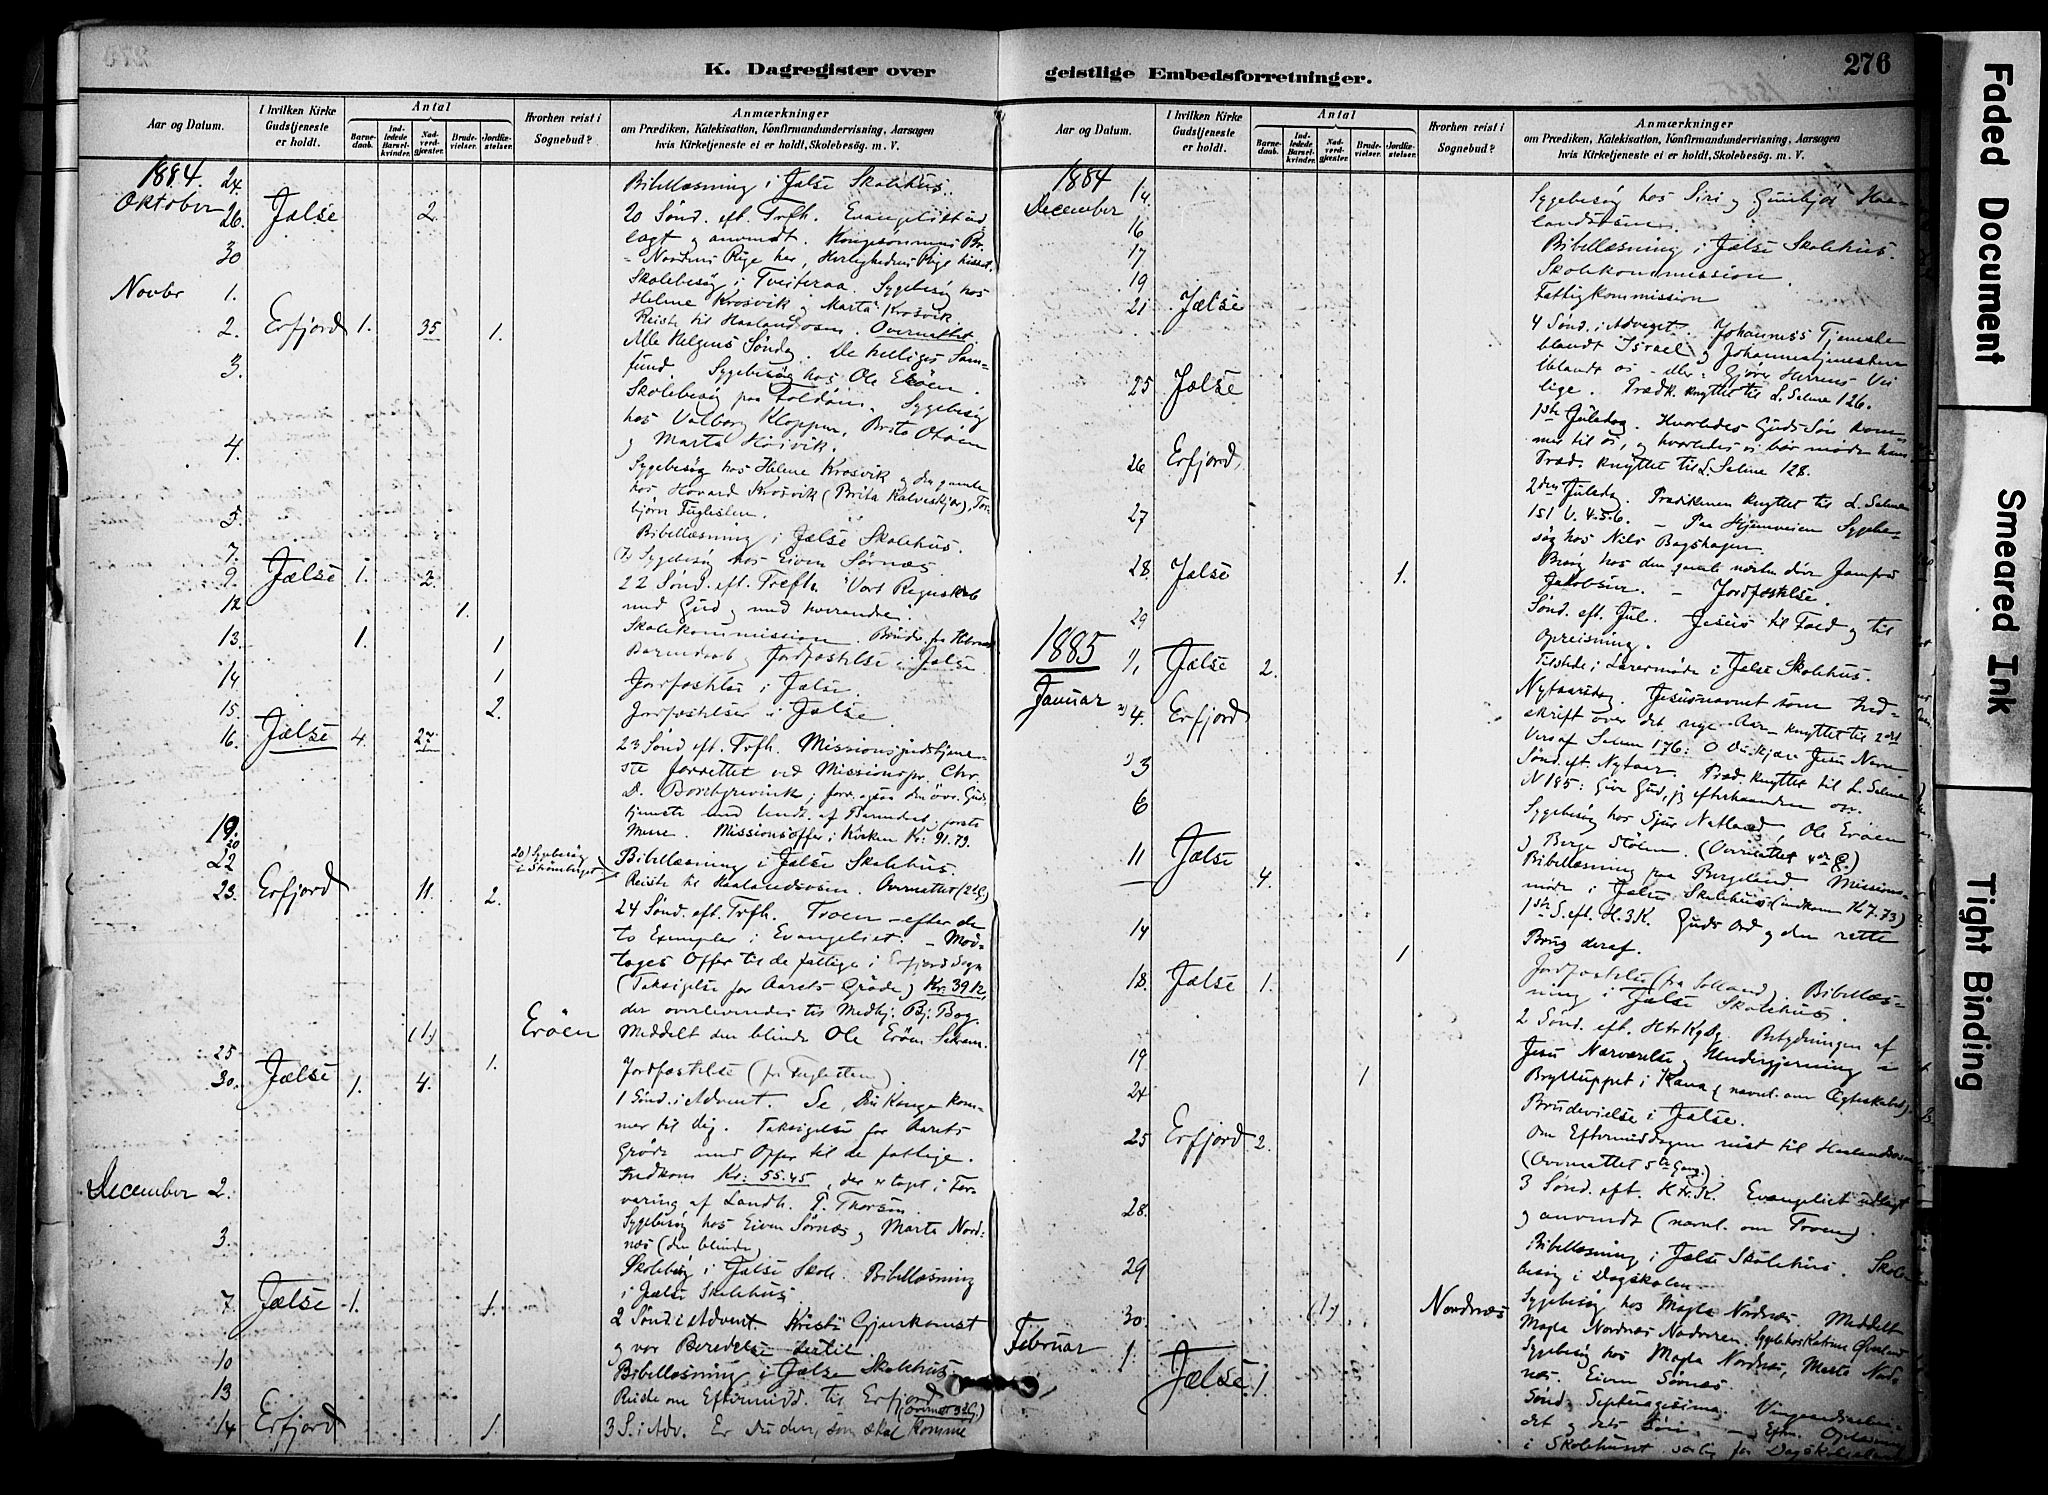 K. Dagregister over
geistlige Embedsforretninger.
276
Aar og Datum.
I hvilken Kirke Gudstjeneste er holdt.
Antal
Barnedaab.
Indledede Barselkvinder.
Nadverdgjæster.
Brudevielser.
Jordfæstelser.
Hvorhen reist i Sognebud?
Anmærkninger
om Prædiken, Katekisation, Konfirmandundervisning, Aarsagen
hvis Kirketjeneste ei er holdt, Skolebesög. m. V.
1884. 24. Bibellæsning i Jælse Skolehus.
Oktober 26. Jælse 2. 20 Sønd. eft. Trfh. Evangeliet ud
lagt og anvendt. Kongesønnens Br.
30 - Nordens Rige her, Herlighedens Rige hisset.
Skolebesøg i Tveiteraa. Sygebesøg hos
Novbr 1. Helene Krosvik og Marta Krosvik.
Reiste til Haalandsosen. Overnattet
2. Erfjord 1. 35 1. Alle Helgens Søndag. De helliges Sam-
fund. Sygebesøg hos Ole Erøen.
3. Skolebesøg paa Foldøen. Sygebesøg
hos Valborg Kloppen, Brita Otøen
4. og Marta Hoisvik.
Sygebesøg hos Helene Krosvik og den gamle
hos Hovard Krosvik (Brita Kalveskjær), Tor
5. bjørn Fugleslen.
Bibellæsning i Jælse Skolehus.
7. 7) Sygebesøg hos Eiven Sørnæs.
9. Jælse 1. 2. 22 Sønd. eft. Trefh. Vort Regnskab
med Gud og med hverandre.
12 1. Skolekommission. Brudev. fra
13. 1. 1 Barnedaab og Jordfæstelse i Jælse.
14. 1 Jordfæstelse i Jælse.
15. 2. Jordfæstelser i Jælse.
16. Jælse 4. 27 23 Sønd. eft. Trfh. Missionsgudstjene-
ste forrettet ved Missionspr. Chr.
D. Borchgrevink, forr. ogsaa den øvr. Guds
tjeneste med Undt. af Barnedaab, første
Messe. Missionsoffer i Kirken Kr. 91.73.
19.
20 20) Sygebesøg i Strømberget Bibellæsning i Jælse Skolehus.
22 Reiste til Haalandsosen. Overnattet (2 G.)
23. Erfjord 11. 2. 24 Sønd. eft. Trfh. Troen - efter de
to Exempler i Evangeliet. - Mod-
toges Offer til de fattige i Erfjord Sogn
(Taksigelse for Aarets Grøde) Kr: 39 12,
der overleveredes til Medhj. Bj. Bog.
(1) Erøen Meddelt den blinde Ole Erøen Sakram.
25 1. Jordfæstelse (fra Fugleslen).
30. Jælse 1. 4. 1 Sønd. i Advent. Se, Din Konge kom-
mer til dig. Taksigelse for Aarets
Grøde med Offer til de fattige.
Indkom Kr: 55.45, der er taget i For-
December 2. varing af Landh. P. Thorsen.
Sygebesøg hos Eiven Sørnæs og Marta Nord-
3. næs (den blinde)
Skolebesøg i Jælse Skole. Bibellæsning
i Jælse Skolehus.
7. Jælse 1. 1. 2 Sønd. i Advent Kristi Gjenkomst
og vor Beredelse dertil
10 Bibellæsning i Jælse Skolehus.
13 Reiste om Eftermidd. til Erfjord
(overnat 3 G.)
14 Erfjord 1. 3 S. i Adv. Er du den, som skal komme
Aar og Datum.
I hvilken Kirke Gudstjeneste er holdt.
Antal
Barnedaab.
Indledede Barselkvinder.
Nadverdgjæster.
Brudevielser.
Jordfæstelser.
Hvorhen reist i Sognebud?
Anmærkninger
om Prædiken, Katekisation, Konfirmandundervisning, Aarsagen
hvis Kirketjeneste ei er holdt, Skolebesög. m. V.
1884 14. Sygebesøg hos Siri og Gunbjør Haa-
December landsosen.
16 Bibellæsning i Jælse Skolehus.
17 Skolekommission.
19 Fattigkommission
21 Jælse 4 Sønd. i Advent. Johannes's Tjeneste
blandt Israel og Johannestjenesten
iblandt os - eller: Gjører Herrens Vei
lige. Præd. knyttet til L. Salme 126.
25 Jælse 1ste Juledag. Hvorledes Guds Søn kom-
mer til os, og hvorledes vi bør møde ham
Præd. knyttet til L. Salme 128.
26 Erfjord, 2den Juledag. Prædikenen knyttet til L. Salme
27 151 V. 4.5.6. - Paa Hjemveien Sygebe-
søg hos Nils Bagshagen.
Besøg hos den
28. Jælse 1. Jakobsen. - Jordfæstelse.
Sønd. eft. Jul. Jesus til Fald og til
29 Opreisning.
Tilstede i Lærermøde i Jælse Skolehus.
1885 1/1 Jælse 2. Nytaarsdag. Jesusnavnet som Ind-
skrift over det nye Aar - knyttet til 2det
Januar 4. Erfjord Vers af Salme 176: O Du skjære Jesu Navn.
3 Sønd. eft. Nytaar. Præd. knyttet til L. Salme
N 185: Give Gud, jeg efterhaanden osv.
6 Sygebesøg hos Sjur Natland, Ole Erøen
og Berge Støien. (Overnattet 4de G.)
11 Jælse 4. Bibellæsning paa Bergeland. Missions-
møde i Jælse Skolehus (indkom Kr 7.73)
1ste S. eft. H.3.K. Guds Ord og den rette
14 1 Brug deraf.
Jordfæstelse (fra Solland). Bibellæs-
18. Jælse 1. ning i Jælse Skolehus.
2 Sønd. eft. HtrKgDg Betydningen af
19 Jesu Nærværelse og Undergjerning i
Brylluppet i Kana (navnl. om Ægteskabet).
24 1 Brudevielse i Jælse.
25 Erfjord 2. Om Eftermiddagen reist til Haalandsosen
(Overnattet 5te Gang.)
3 Sønd. eft. Htr.K. Evangeliet udlagt
28. og anvendt (navnl. om Troen).
29 Bibellæsning i Jælse Skolehus. Skole-
besøg i Dagskolen
30. (1) Nordnæs Sygebesøg hos Magla Nordnæs. Meddelt
Magla Nordnæs Nadveren. Sygeb. hos Katrine Øverland
Februar 1. Sygebesøg hos Magla Nordnæs, Marta Nord-
næs. Eiven Sørnæs.
Jælse. 1. Sønd. Septuagesima. Vingaardsarbei-
det og dets Løn. - Eftm. Oplæsning
i Skolehuset særlig for Dagskolen
Faded Document
Smeared Ink
Tight Binding